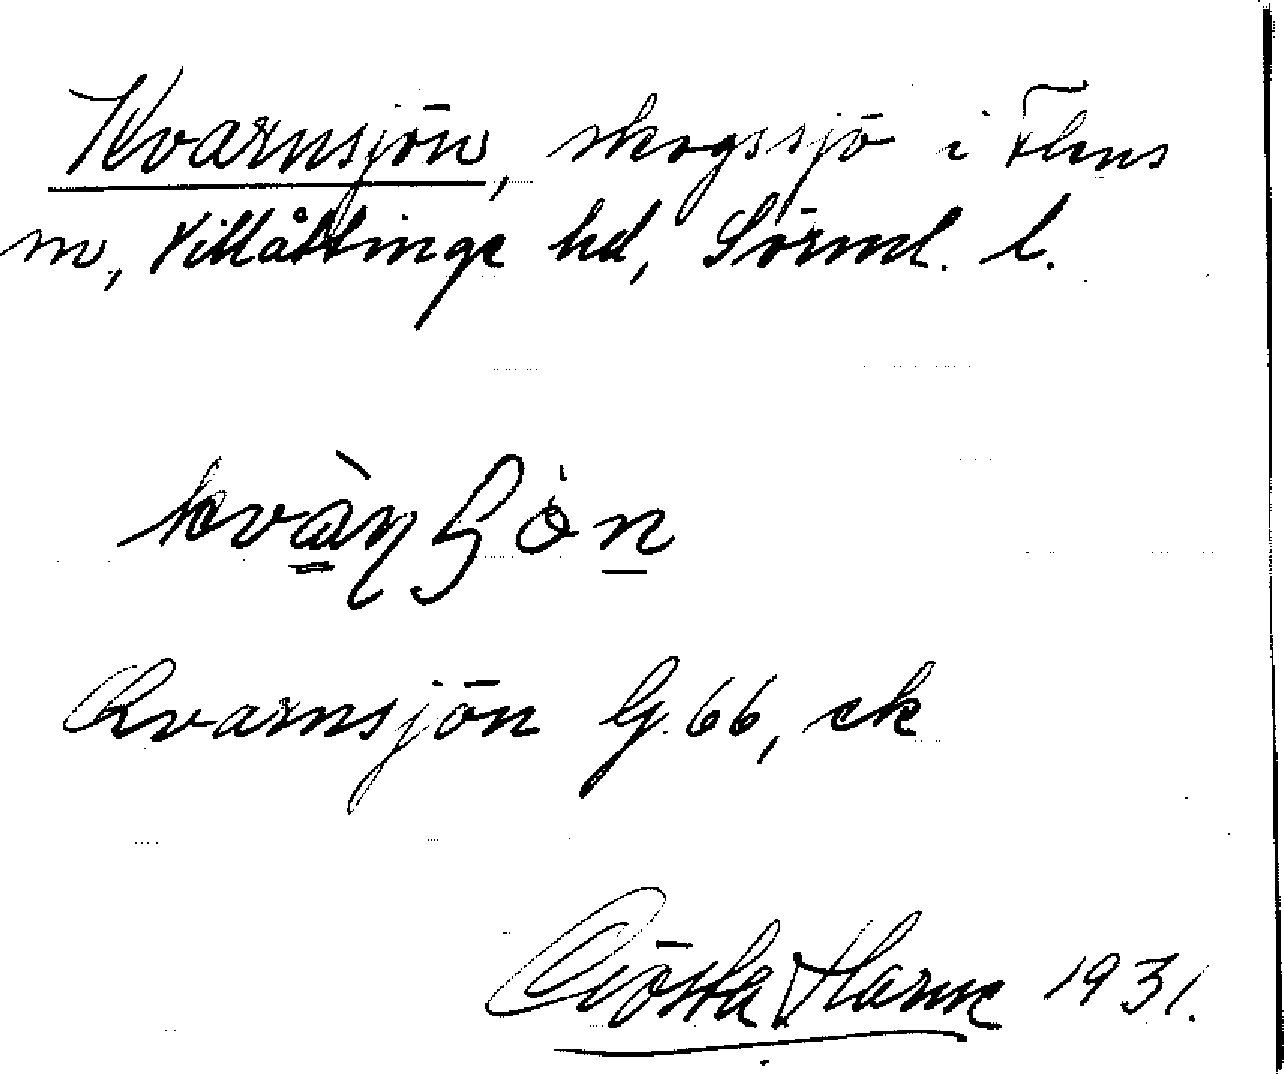 Kvarnsjön, skogssjö i Flens
sn, Villåttinge hd, Sörml. l.
Kvarnsjön G. 66, ek
Gösta Harne 1931.